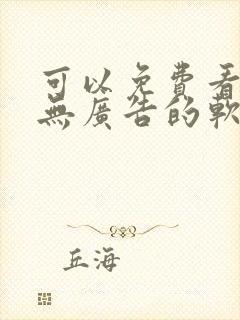 可以免費看
無廣告的軟
丘海